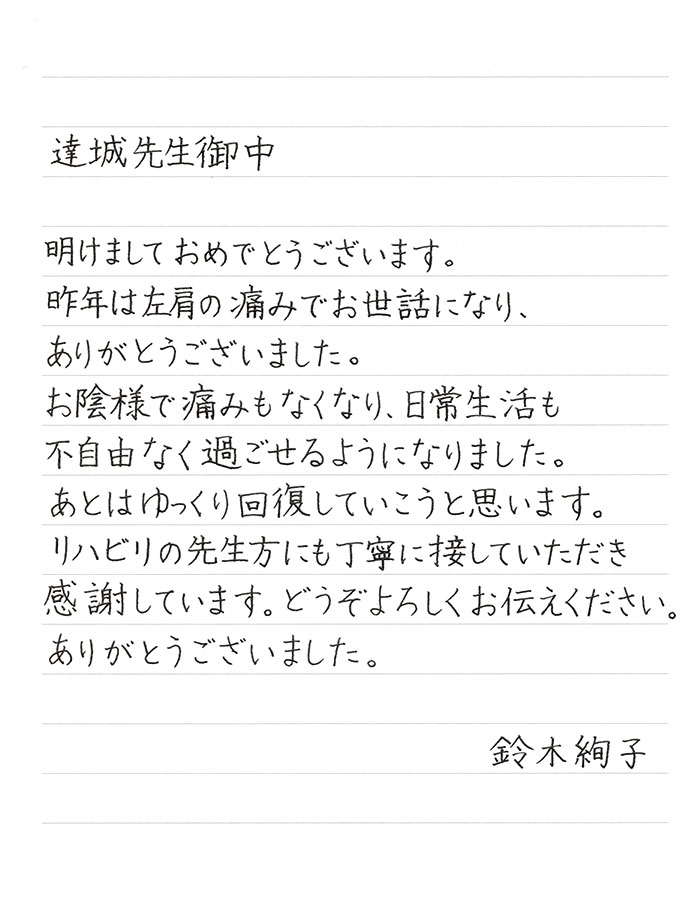 達城先生御中
明けましておめでとうございます。
昨年は左肩の痛みでお世話になり、
ありがとうございました。
お陰様で痛みもなくなり、日常生活も
不自由なく過ごせるようになりました。
あとはゆっくり回復していこうと思います。
リハビリの先生方にも丁寧に接していただき
感謝しています。どうぞよろしくお伝えください。
ありがとうございました。
鈴木絢子